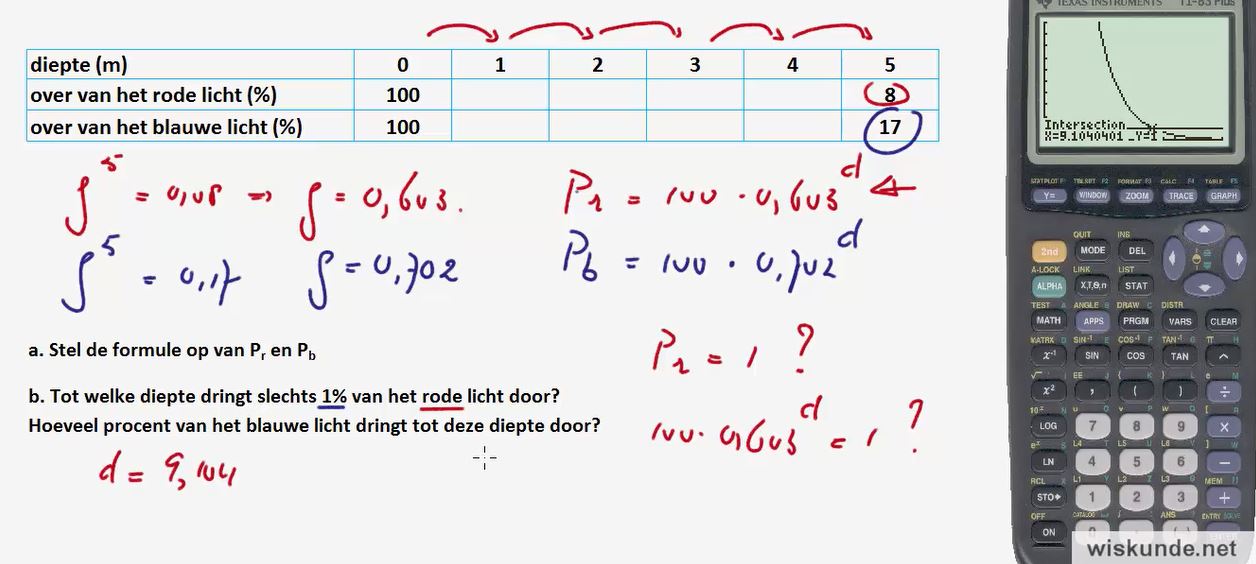 TEXAS INSTRUMENTS TI-83 Plus
diepte (m) 0 1 2 3 4 5
over van het rode licht (%) 100 8
over van het blauwe licht (%) 100 17
Intersection
X=9.1040401 Y=1
g^5 = 0,08 ⇒ g = 0,603.
P_r = 100 · 0,603^d
g^5 = 0,17 g = 0,702
P_b = 100 · 0,702^d
a. Stel de formule op van P_r en P_b
P_r = 1 ?
b. Tot welke diepte dringt slechts 1% van het rode licht door?
Hoeveel procent van het blauwe licht dringt tot deze diepte door?
100 · 0,603^d = 1 ?
d = 9,104
STATPLOT F1 TBLSET F2 FORMAT F3 CALC F4 TABLE F5
Y= WINDOW ZOOM TRACE GRAPH
QUIT INS
2nd MODE DEL
A-LOCK LINK LIST
ALPHA X,T,Θ,n STAT
TEST A ANGLE B DRAW C DISTR
MATH APPS PRGM VARS CLEAR
MATRX D SIN⁻¹ E COS⁻¹ F TAN⁻¹ G π H
x⁻¹ SIN COS TAN ^
√ I EE J { K } L e M
x² , ( ) ÷
10ˣ N u O v P w Q [ R
LOG 7 8 9 ×
eˣ S L4 T L5 U L6 V ] W
LN 4 5 6 −
RCL X L1 Y L2 Z L3 θ MEM "
STO▸ 1 2 3 +
OFF CATALOG i ANS ? ENTRY SOLVE
ON 0 . (−)
wiskunde.net